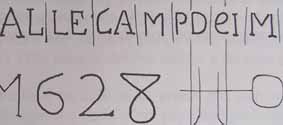 AL|LE|CA|M|PD|eI|M|
1628